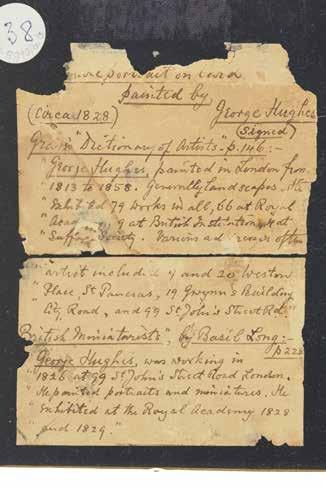 38
portrait on card
painted by
(Circa 1828) George Hughes
(Signed)
"Dictionary of Artists" p. 146:-
"George Hughes, painted in London from
"1813 to 1858. Generally landscapes. He
"Exhibited 79 works in all, 66 at Royal
"Academy, 9 at British Institution, 4 at
"Suffolk Society. Various addresses of the
"artist included 4 and 20 Weston
"Place, St Pancras, 19 Gwynn's Building
"City Road, and 99 St John's Street Rd."
British Miniaturists" by Basil Long:-
p 228
"George Hughes, was working in
"1826 at 99 St John's Street Road London.
"He painted portraits and miniatures. He
"Exhibited at the Royal Academy 1828
"and 1829."